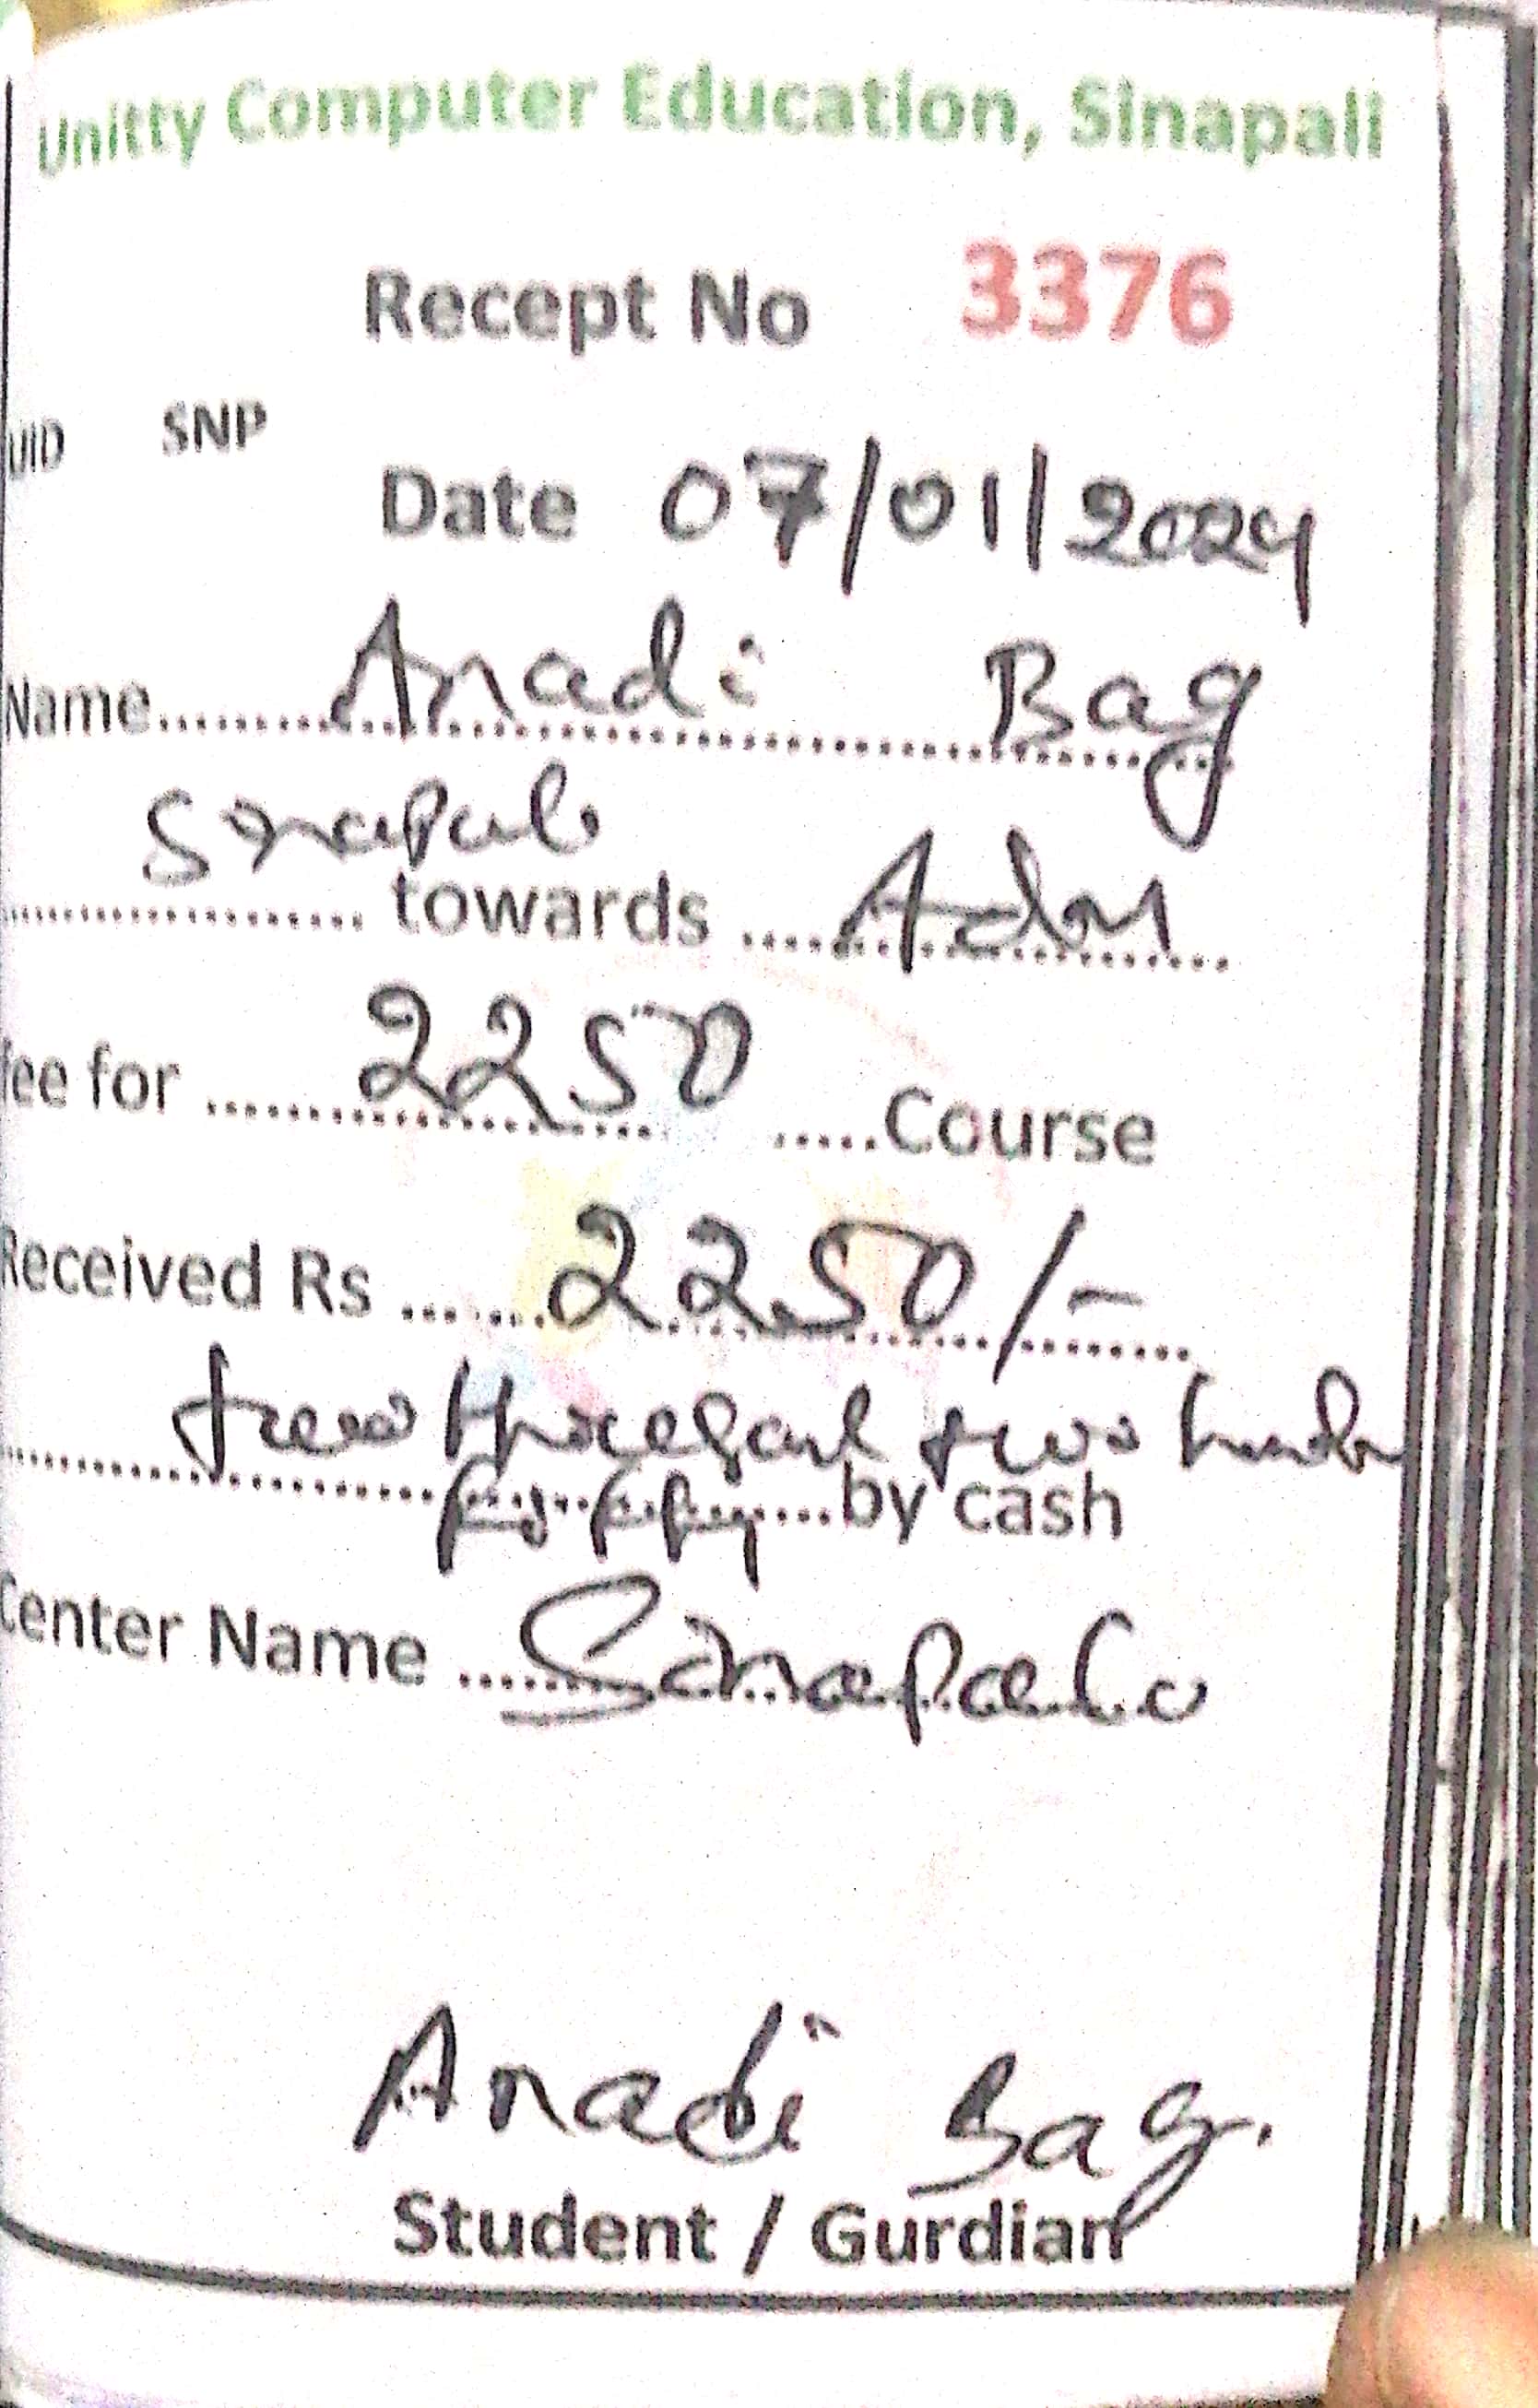 Unitty Computer Education, Sinapali
Recept No 3376
UID SNP
Date 07/01/2024
Name........Anadi Bag
Sinapali
.................. towards ....Adm
fee for ..........2250 .....Course
Received Rs .......2250/-
two hundr
..................by cash
Center Name .....Sinapali
Anadi Bag.
Student / Gurdian